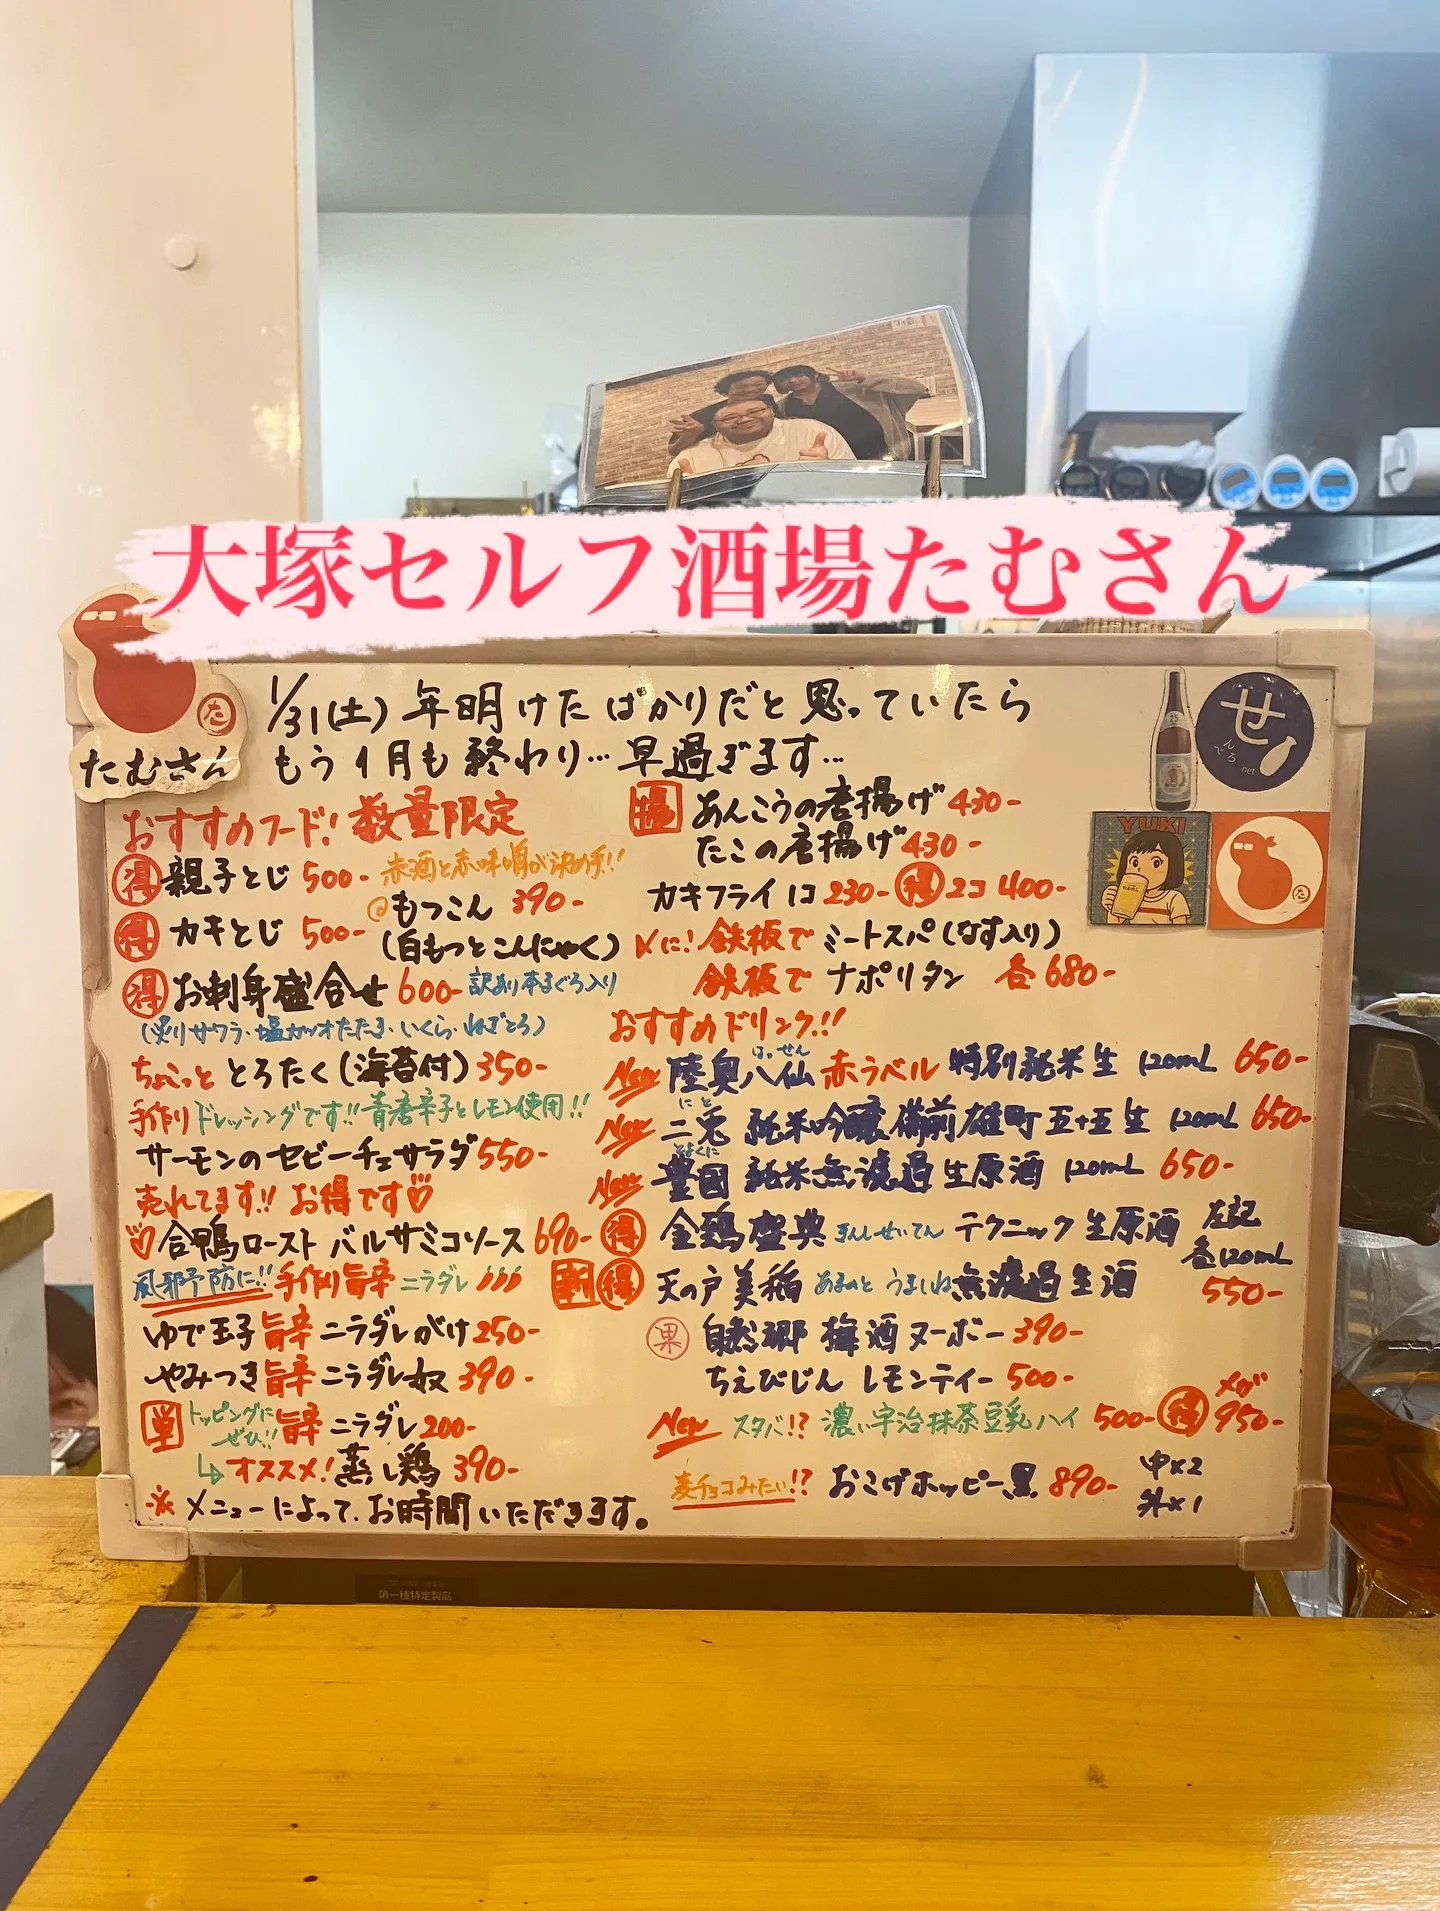 大塚セルフ酒場たむさん
た
たむさん
1/31(土) 年明けたばかりだと思っていたら
もう1月も終わり…早過ぎます…
せ
んべろ
net
YUKI
た
おすすめフード! 数量限定
得 親子とじ 500-
赤酒と赤味噌が決め手!!
@もつこん 390-
(白もつとこんにゃく)
得 カキとじ 500-
得 お刺身盛合せ 600- 訳あり本まぐろ入り
(炙りサワラ・塩カツオたたき・いくら・ねぎとろ)
ちょこっと とろたく(海苔付) 350-
手作り ドレッシングです!! 青唐辛子とレモン使用!!
サーモンのセビーチェサラダ 550-
売れてます!! お得です♡
♡合鴨ロースト バルサミコソース 690-
風邪予防に!! 手作り旨辛 ニラダレ
ゆで玉子 旨辛 ニラダレがけ 250-
やみつき旨辛 ニラダレ奴 390-
単 トッピングに ぜひ!! 旨辛 ニラダレ 200-
↳オススメ! 蒸し鶏 390-
※メニューによって、お時間いただきます。
揚 あんこうの唐揚げ 430-
たこの唐揚げ 430-
カキフライ 1コ 230- 得 2コ 400-
〆に! 鉄板で ミートスパ(なす入り)
鉄板で ナポリタン 各680-
おすすめドリンク!!
New 陸奥八仙 はっせん 赤ラベル 特別純米生 120mL 650-
New 二兎 にと 純米吟醸 備前雄町 五十五 生 120mL 650-
New 豊國 とよくに 純米無濾過生原酒 120mL 650-
得 金鶏盛典 きんしせいてん テクニック 生原酒 左記 各120mL
新 得 天の戸 美稲 あまのと うましね 無濾過生酒 550-
果 自然郷 梅酒ヌーボー 390-
ちえびじん レモンティー 500-
New スタバ!? 濃い宇治抹茶豆乳ハイ 500- 得 メガ 950-
麦チョコみたい!? おこげホッピー黒 890- 中×2
外×1
第一種特定製品